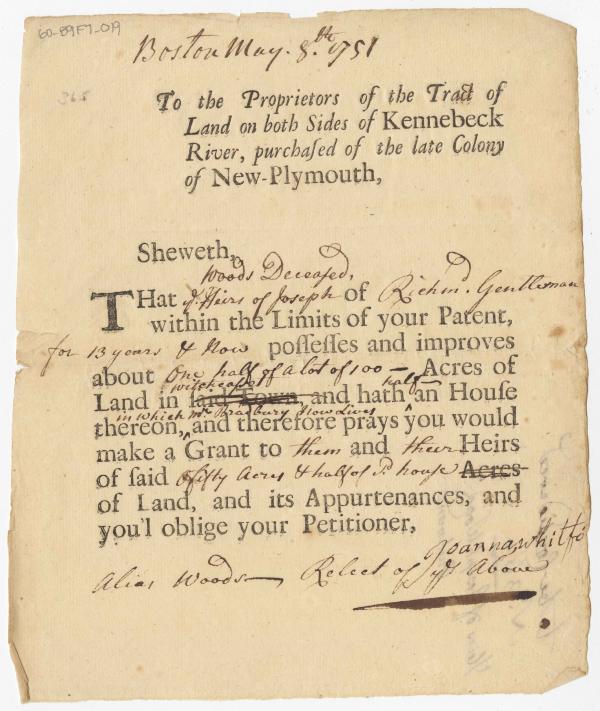 60-89F7-019
Boston May. 8.th 1751
365
To the Proprietors of the Tract of
Land on both Sides of Kennebeck
River, purchaſed of the late Colony
of New-Plymouth,
Sheweth,
Woods Deceased,
THat ye Heirs of Joseph of Richmd. Gentleman
within the Limits of your Patent,
for 13 years & Now poſſeſſes and improves
about One half of a lot of 100 — Acres of
Land in said Town, and hath half an Houſe
in which Mr. Bradbury Now Lives
thereon, and therefore prays you would
make a Grant to them and their Heirs
of ſaid fifty Acres & half of sd. house Acres
of Land, and its Appurtenances, and
you'l oblige your Petitioner,
Joanna Whitfo
Alias Woods — Relect of ye Above